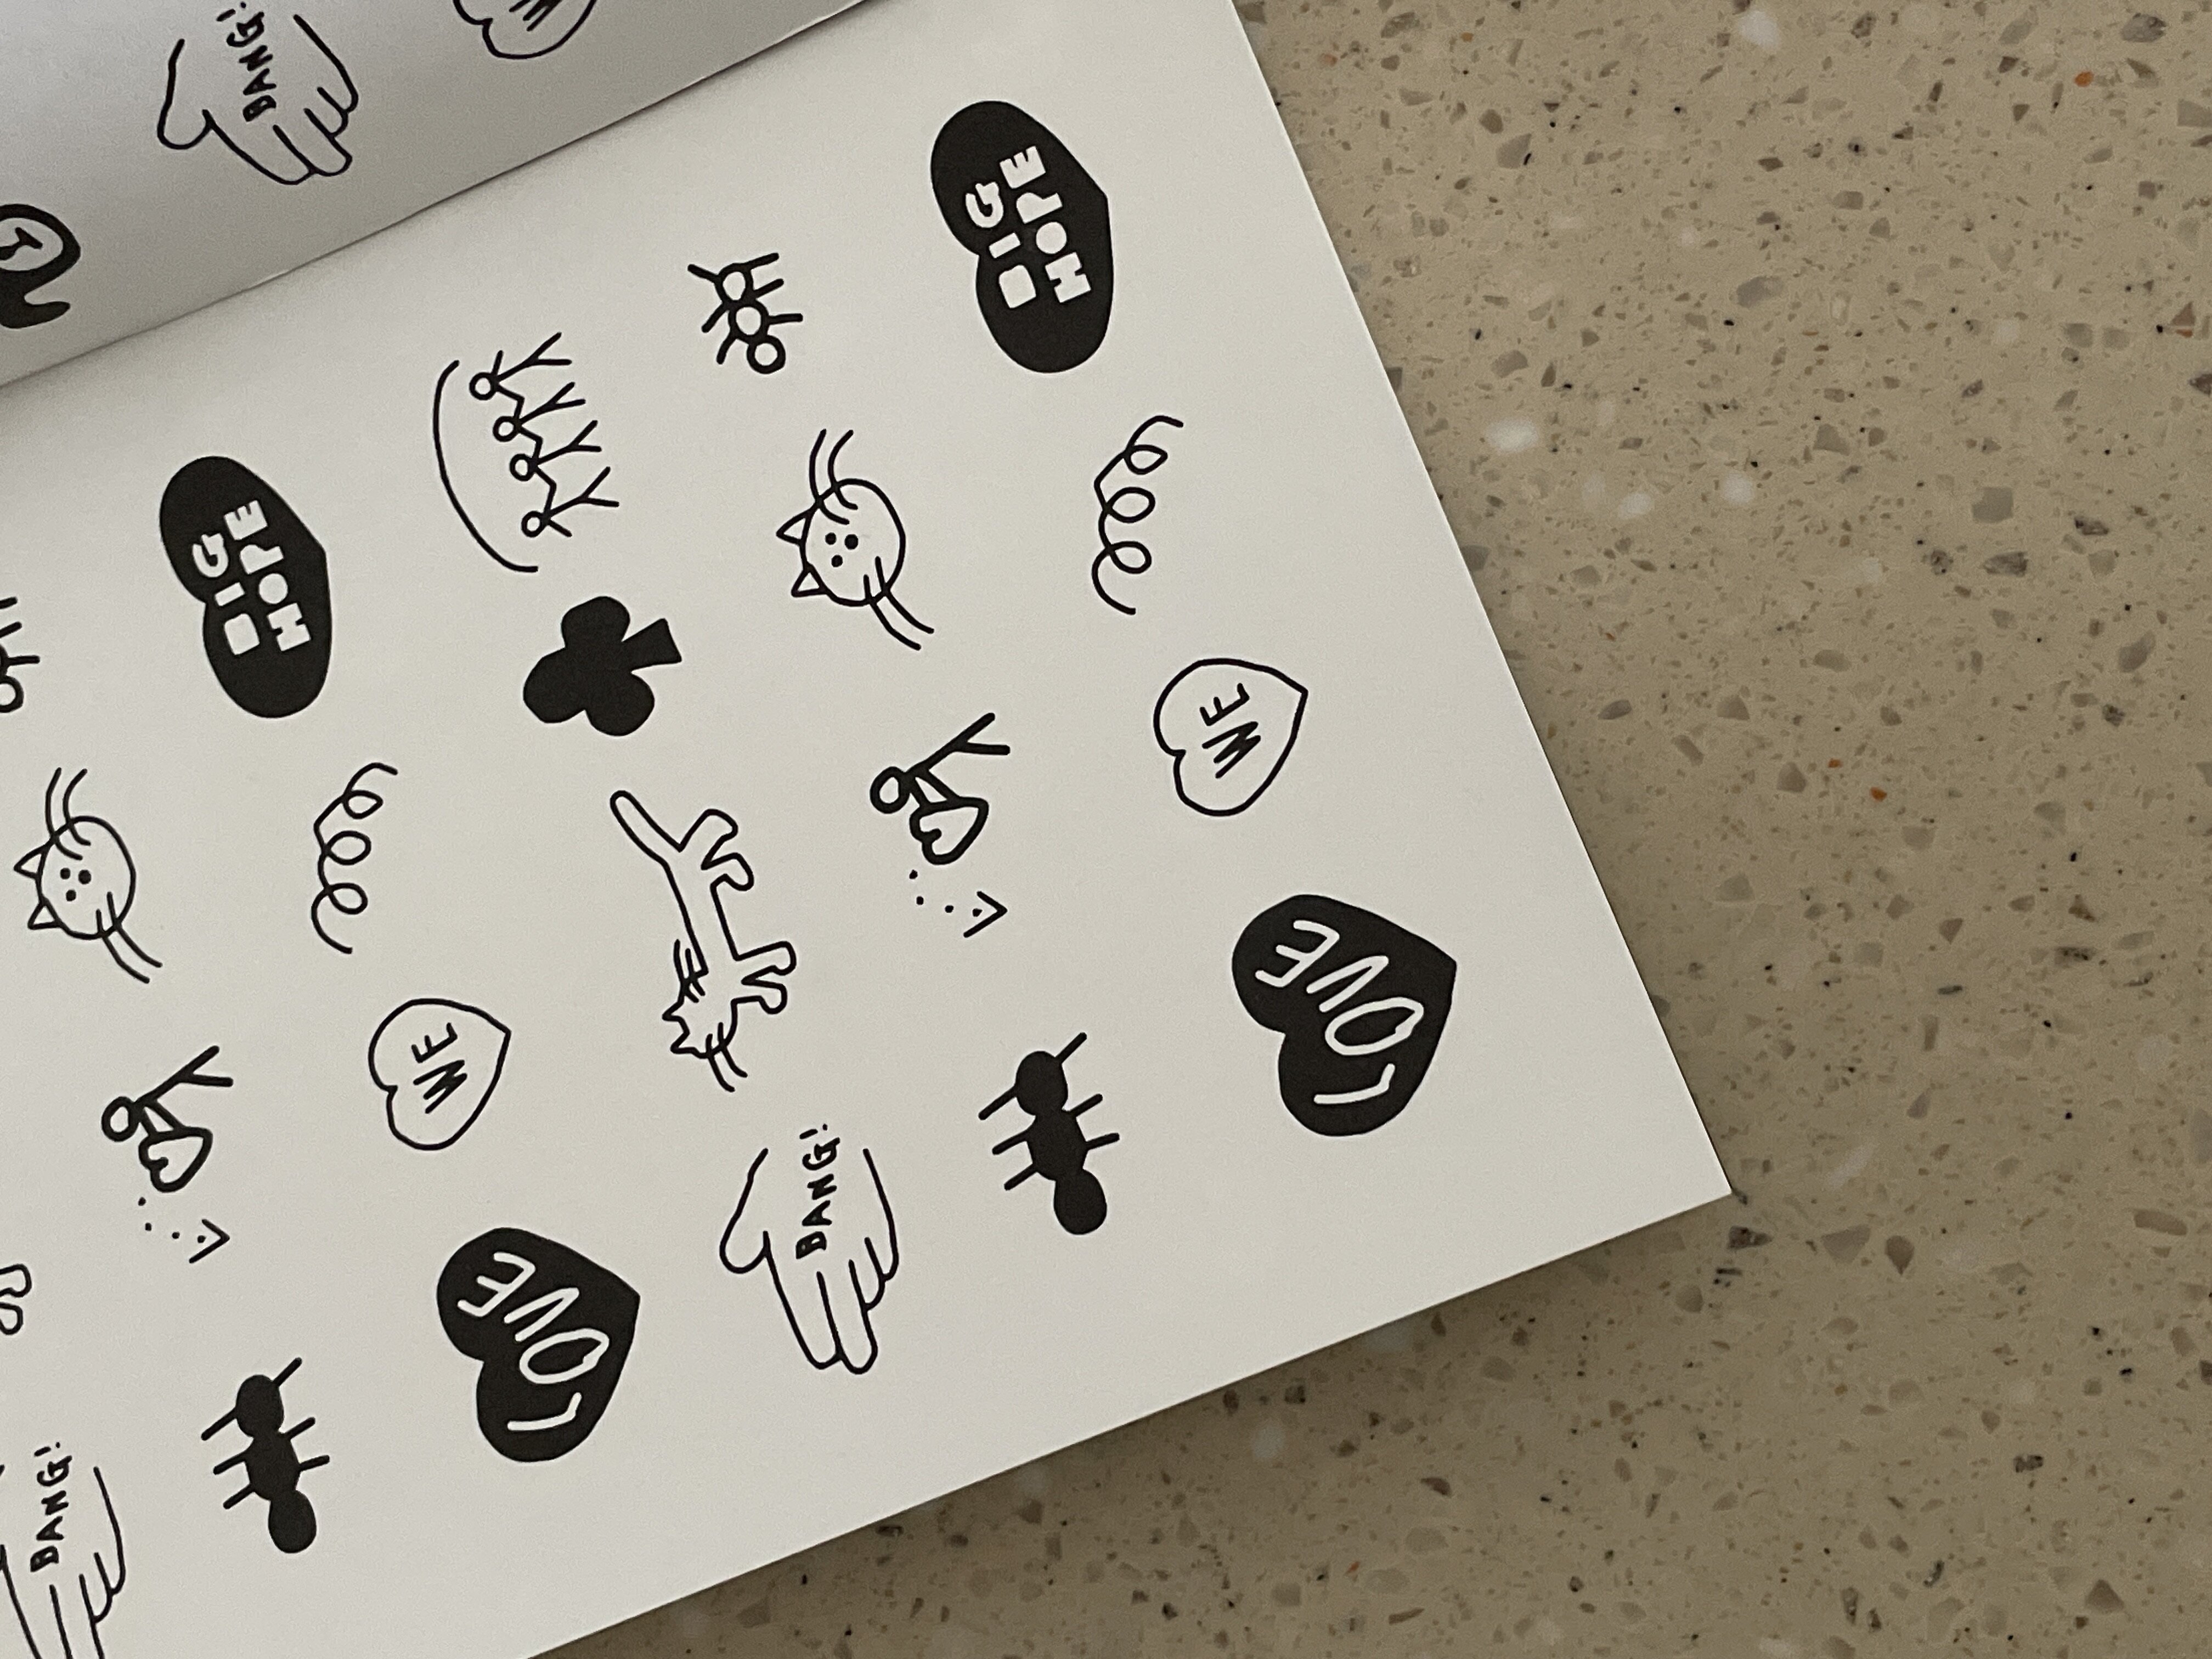 BANG!
WE
BIG
HOPE
BIG
HOPE
WE
WE
LOVE
BANG!
LOVE
BANG!